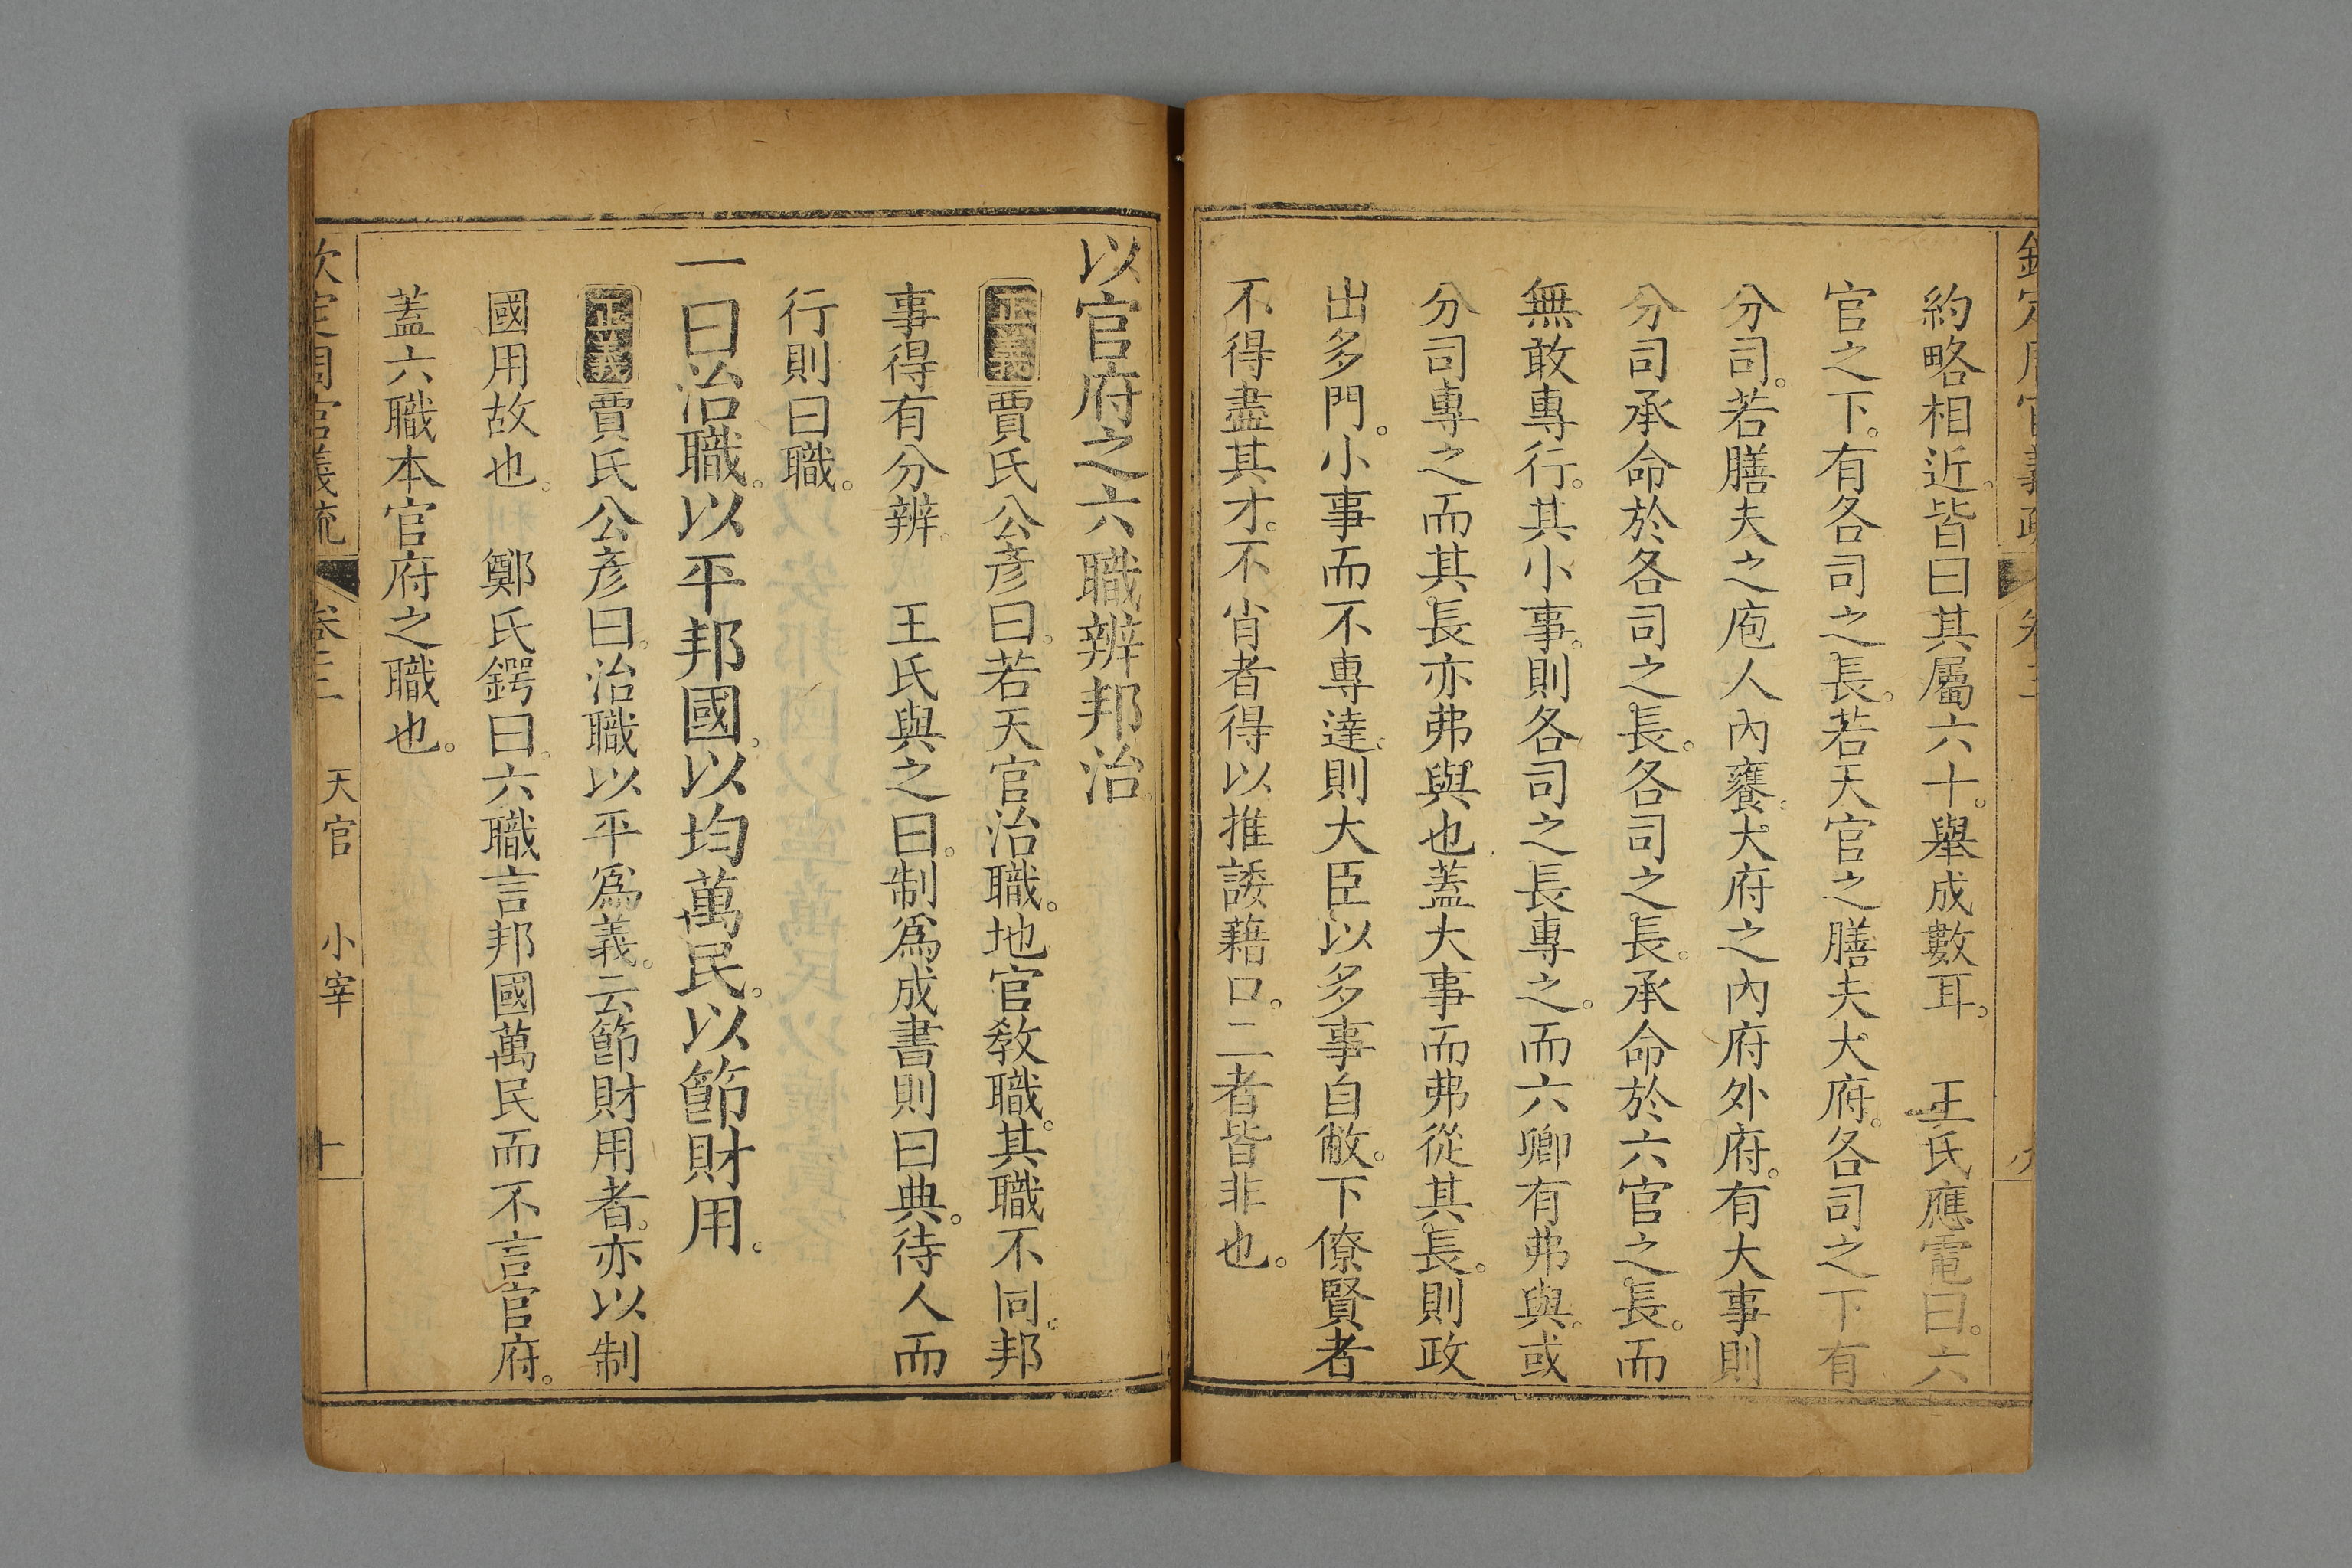 約略相近。皆曰其屬六十。舉成數耳。　王氏應電曰。六
官之下。有各司之長。若天官之膳夫大府。各司之下有
分司。若膳夫之庖人內饔。大府之內府外府。有大事則
分司承命於各司之長。各司之長。承命於六官之長。而
無敢專行。其小事。則各司之長專之。而六卿有弗與。或
分司專之而其長亦弗與也蓋大事而弗從其長。則政
出多門。小事而不專達。則大臣以多事自敝。下僚賢者
不得盡其才。不肖者得以推諉藉口。二者皆非也。
以官府之六職辨邦治。
正義賈氏公彥曰。若天官治職。地官教職。其職不同。邦
事得有分辨。　王氏與之曰。制爲成書則曰典。待人而
行則曰職。
一曰治職。以平邦國。以均萬民。以節財用。
正義賈氏公彥曰。治職以平爲義。云節財用者。亦以制
國用故也。　鄭氏鍔曰。六職言邦國萬民而不言官府。
蓋六職本官府之職也。
欽定周官義疏　卷三　天官　小宰　十